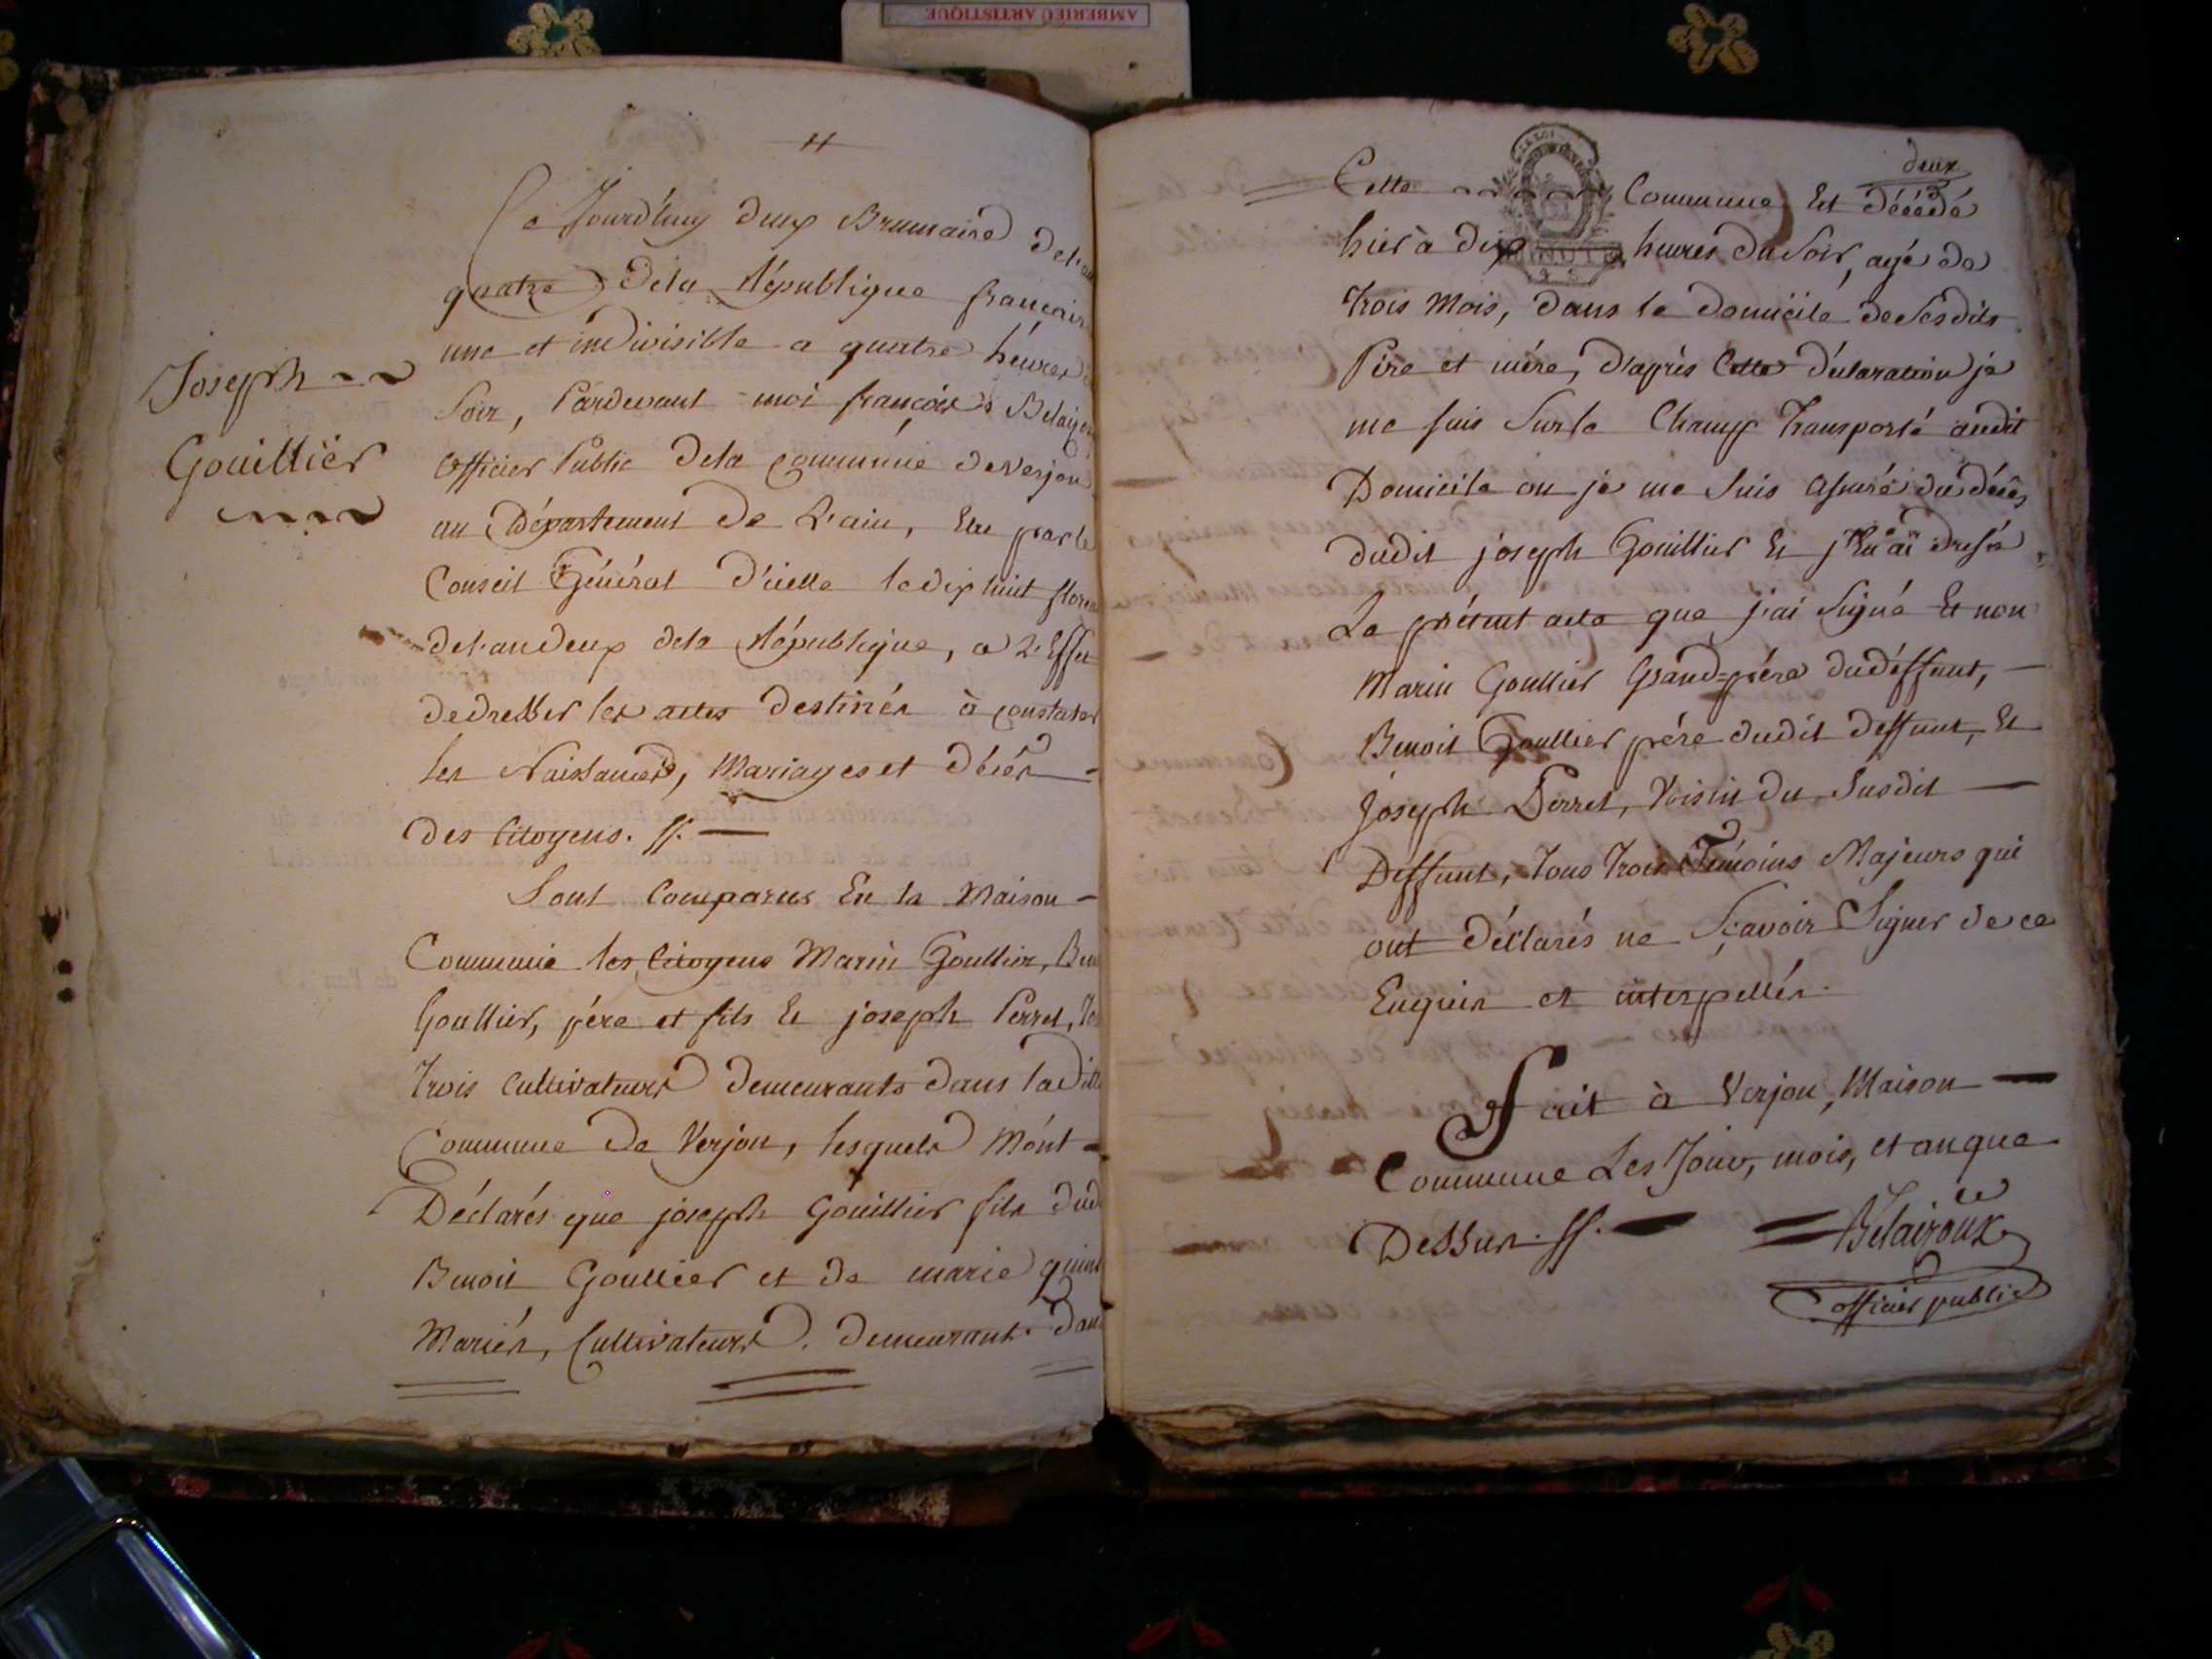 AMBERIEU ARTISTIQUE
Ce Jourd'huy deux Brumaire de l'an
quatre de la République francais
une et indivisible a quatre héures
Soir, Pardevant moi françois Belair
Officier Public dela commune de Verjon
au Département de L'ain, Elu par le
Conseil Général d'icelle le dix huit flore
del'an deux dela République, a L'Effet
de dresser les actes destinés à constater
les Naissances, Mariages et décès
des Citoyens. //.
Sont Comparus En la Maison
Commune les Citoyens Marin Goullier, Ben
Goullier, pére et fils Et joseph Perret,
trois Cultivateurs demeurants dans ladite
Commune de Verjon, lesquels M'ont
Déclarés que joseph Gouillier fils dud
Benoit Goullier et de marie quint
Mariés, Cultivateurs. demeurant dans
Joseph
Gouilliér
deux
Cette Commune, Est décédé
hier à dix heures du Soir, agé de
trois Mois, dans le domicile de Sesdits
Pére et mére, d'après Cette déclaration je
me suis Sur le Champ transporté audit
Domicile ou je me Suis assuré du décès
dudit joseph Gouillier Et j'En ai dressé
Le présent acte que j'ai Signé Et non
Marin Goullier Grand=pére du déffunt,
Benoit Goullier pére dudit deffunt, Et
joseph Perret, Voisin du Susdit
Deffunt, tous trois Témoins Majeurs qui
ont déclarés ne Sçavoir Signer de ce
Enquis et interpellés.
Fait à Verjon, Maison
Commune Les Jour, mois, et an que
Dessus. //. Belairoux
officier public